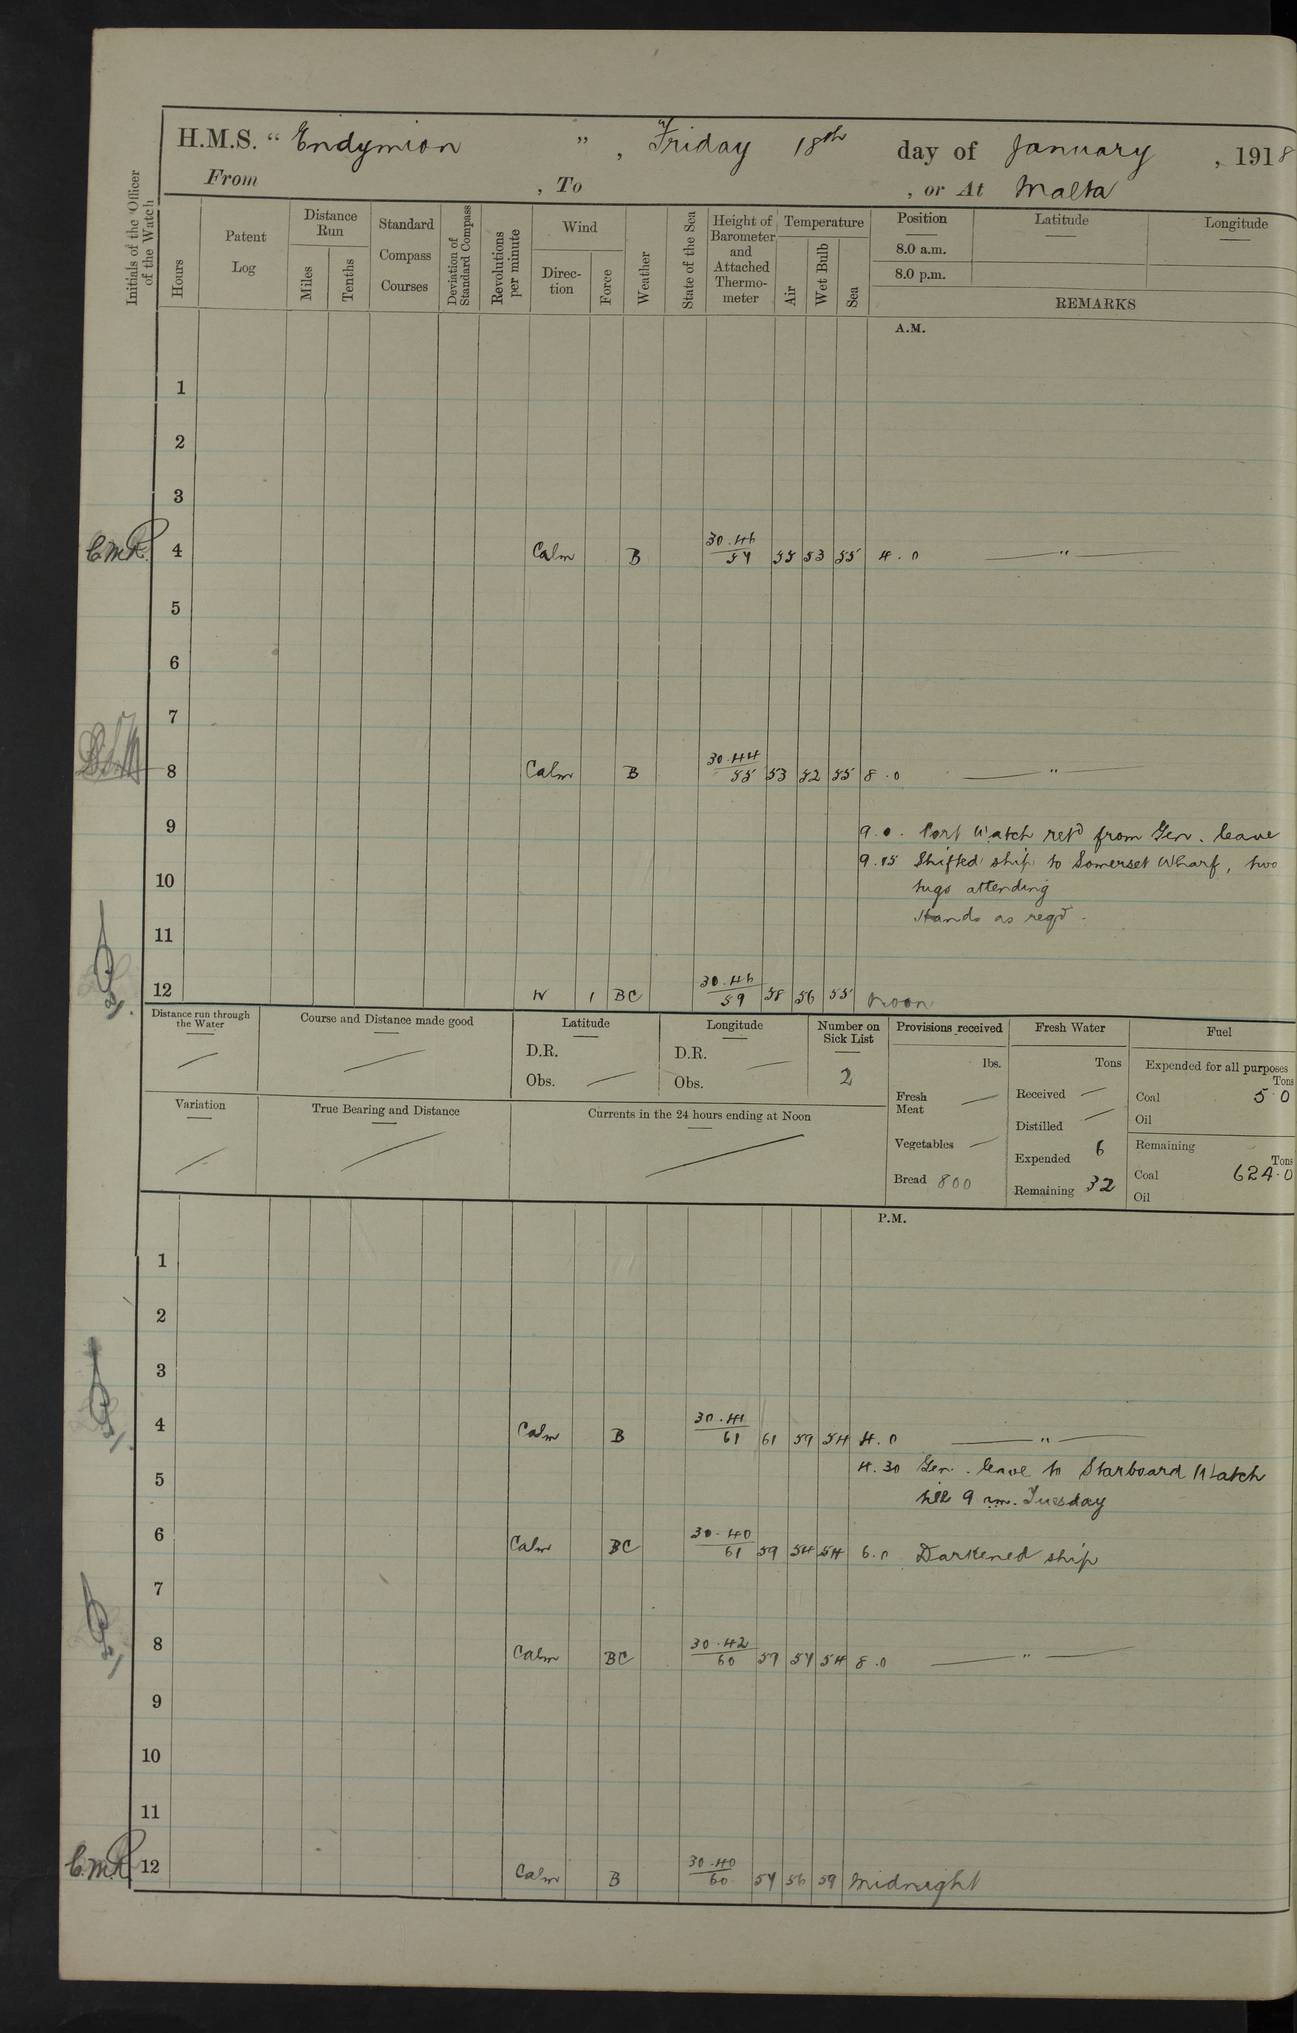 H.M.S. " Endymion ", Friday 18th day of January, 1918
From , To , or At Malta
Initials of the Officer of the Watch
Hours
Patent Log
Distance Run
Miles
Tenths
Standard Compass Courses
Deviation of Standard Compass
Revolutions per minute
Wind
Direc-tion
Force
Weather
State of the Sea
Height of Barometer and Attached Thermo-meter
Temperature
Air
Wet Bulb
Sea
Position Latitude Longitude
8.0 a.m.
8.0 p.m.
REMARKS
A.M.
1
2
3
C.M.R. 4 Calm B 30.46 55 53 55 4.0 — " —
5
6
7
8 Calm B 30.44 55 53 52 55 8.0 — " —
9 9.0. Port Watch retd from Gen. leave
9.15 Shifted ship to Somerset Wharf, two
10 tugs attending
Hands as reqd.
11
12 W 1 BC 30.46 59 58 56 55 Noon
Distance run through the Water
Course and Distance made good
Latitude
D.R.
Obs.
Longitude
D.R.
Obs.
Number on Sick List
2
Variation
True Bearing and Distance
Currents in the 24 hours ending at Noon
Provisions received
lbs.
Fresh Meat
Vegetables
Bread 800
Fresh Water
Tons
Received
Distilled
Expended 6
Remaining 32
Fuel
Expended for all purposes
Tons
Coal 5.0
Oil
Remaining
Tons
Coal 624.0
Oil
P.M.
1
2
3
4 Calm B 30.41 61 61 59 54 4.0 — " —
4.30 Gen. leave to Starboard Watch
5 till 9 am. Tuesday
6 Calm BC 30.40 61 59 54 54 6.0 Darkened ship
7
8 Calm BC 30.42 60 54 8.0 — " —
9
10
11
C.M.R. 12 Calm B 30.40 60 56 59 Midnight